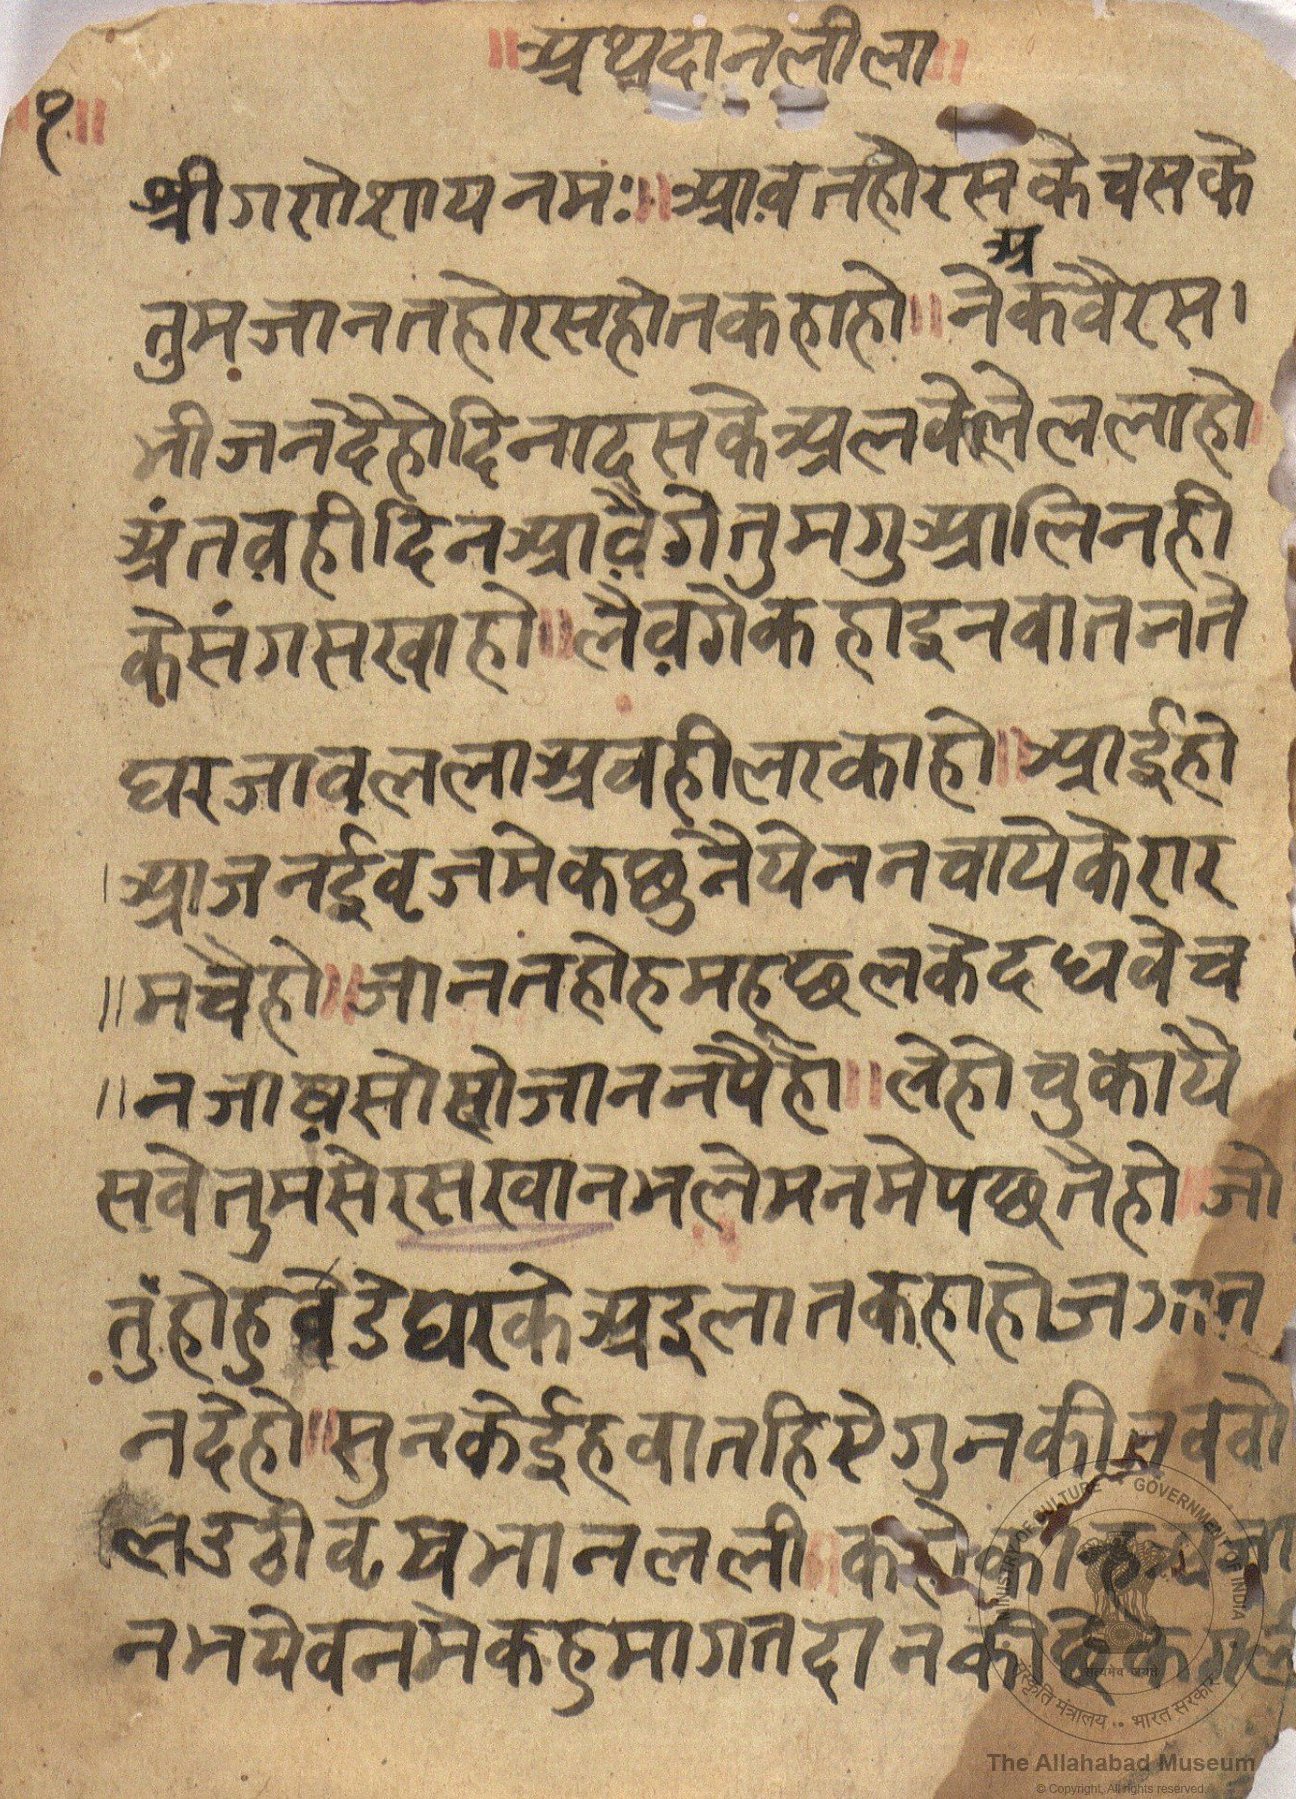 ॥अथदानलीला॥
१॥
श्रीगणेशायनमः॥आवतहौरसकेचसके
अ
तुमजानतहोरसहोतकहाहो॥नेकवैरस।
भीजनदैहोदिनादसकेअलवेलेललाहो
अंतवहीदिनआवैगेतुमगुआलिनही
केसंगसखाहो॥लेवगेकहाइनवातनते
घरजावललाअवहीलरकाहो॥आईहो
।आजनईवृजमेकछुनैयेननचायेकेरार
॥मचैहो॥जानतहोहमहछलकेदधवेच
॥नजावसोसोजाननपैहो॥लेहोचुकाये
सवेतुमसेरसखानभलेमनमेपछतेहो॥जो
तुंहोहुवडेघरकेअइलातकहाहोजगात
नदेहो॥सुनकेईहवातहिएगुनकीतववो
लउठीवृषभानलली॥कहोका
नभयेवनमेकहुमागतदानकी
MINISTRY OF CULTURE GOVERNMENT OF INDIA
सत्यमेव जयते
संस्कृति मंत्रालय भारत सरकार
The Allahabad Museum
© Copyright, All rights reserved.